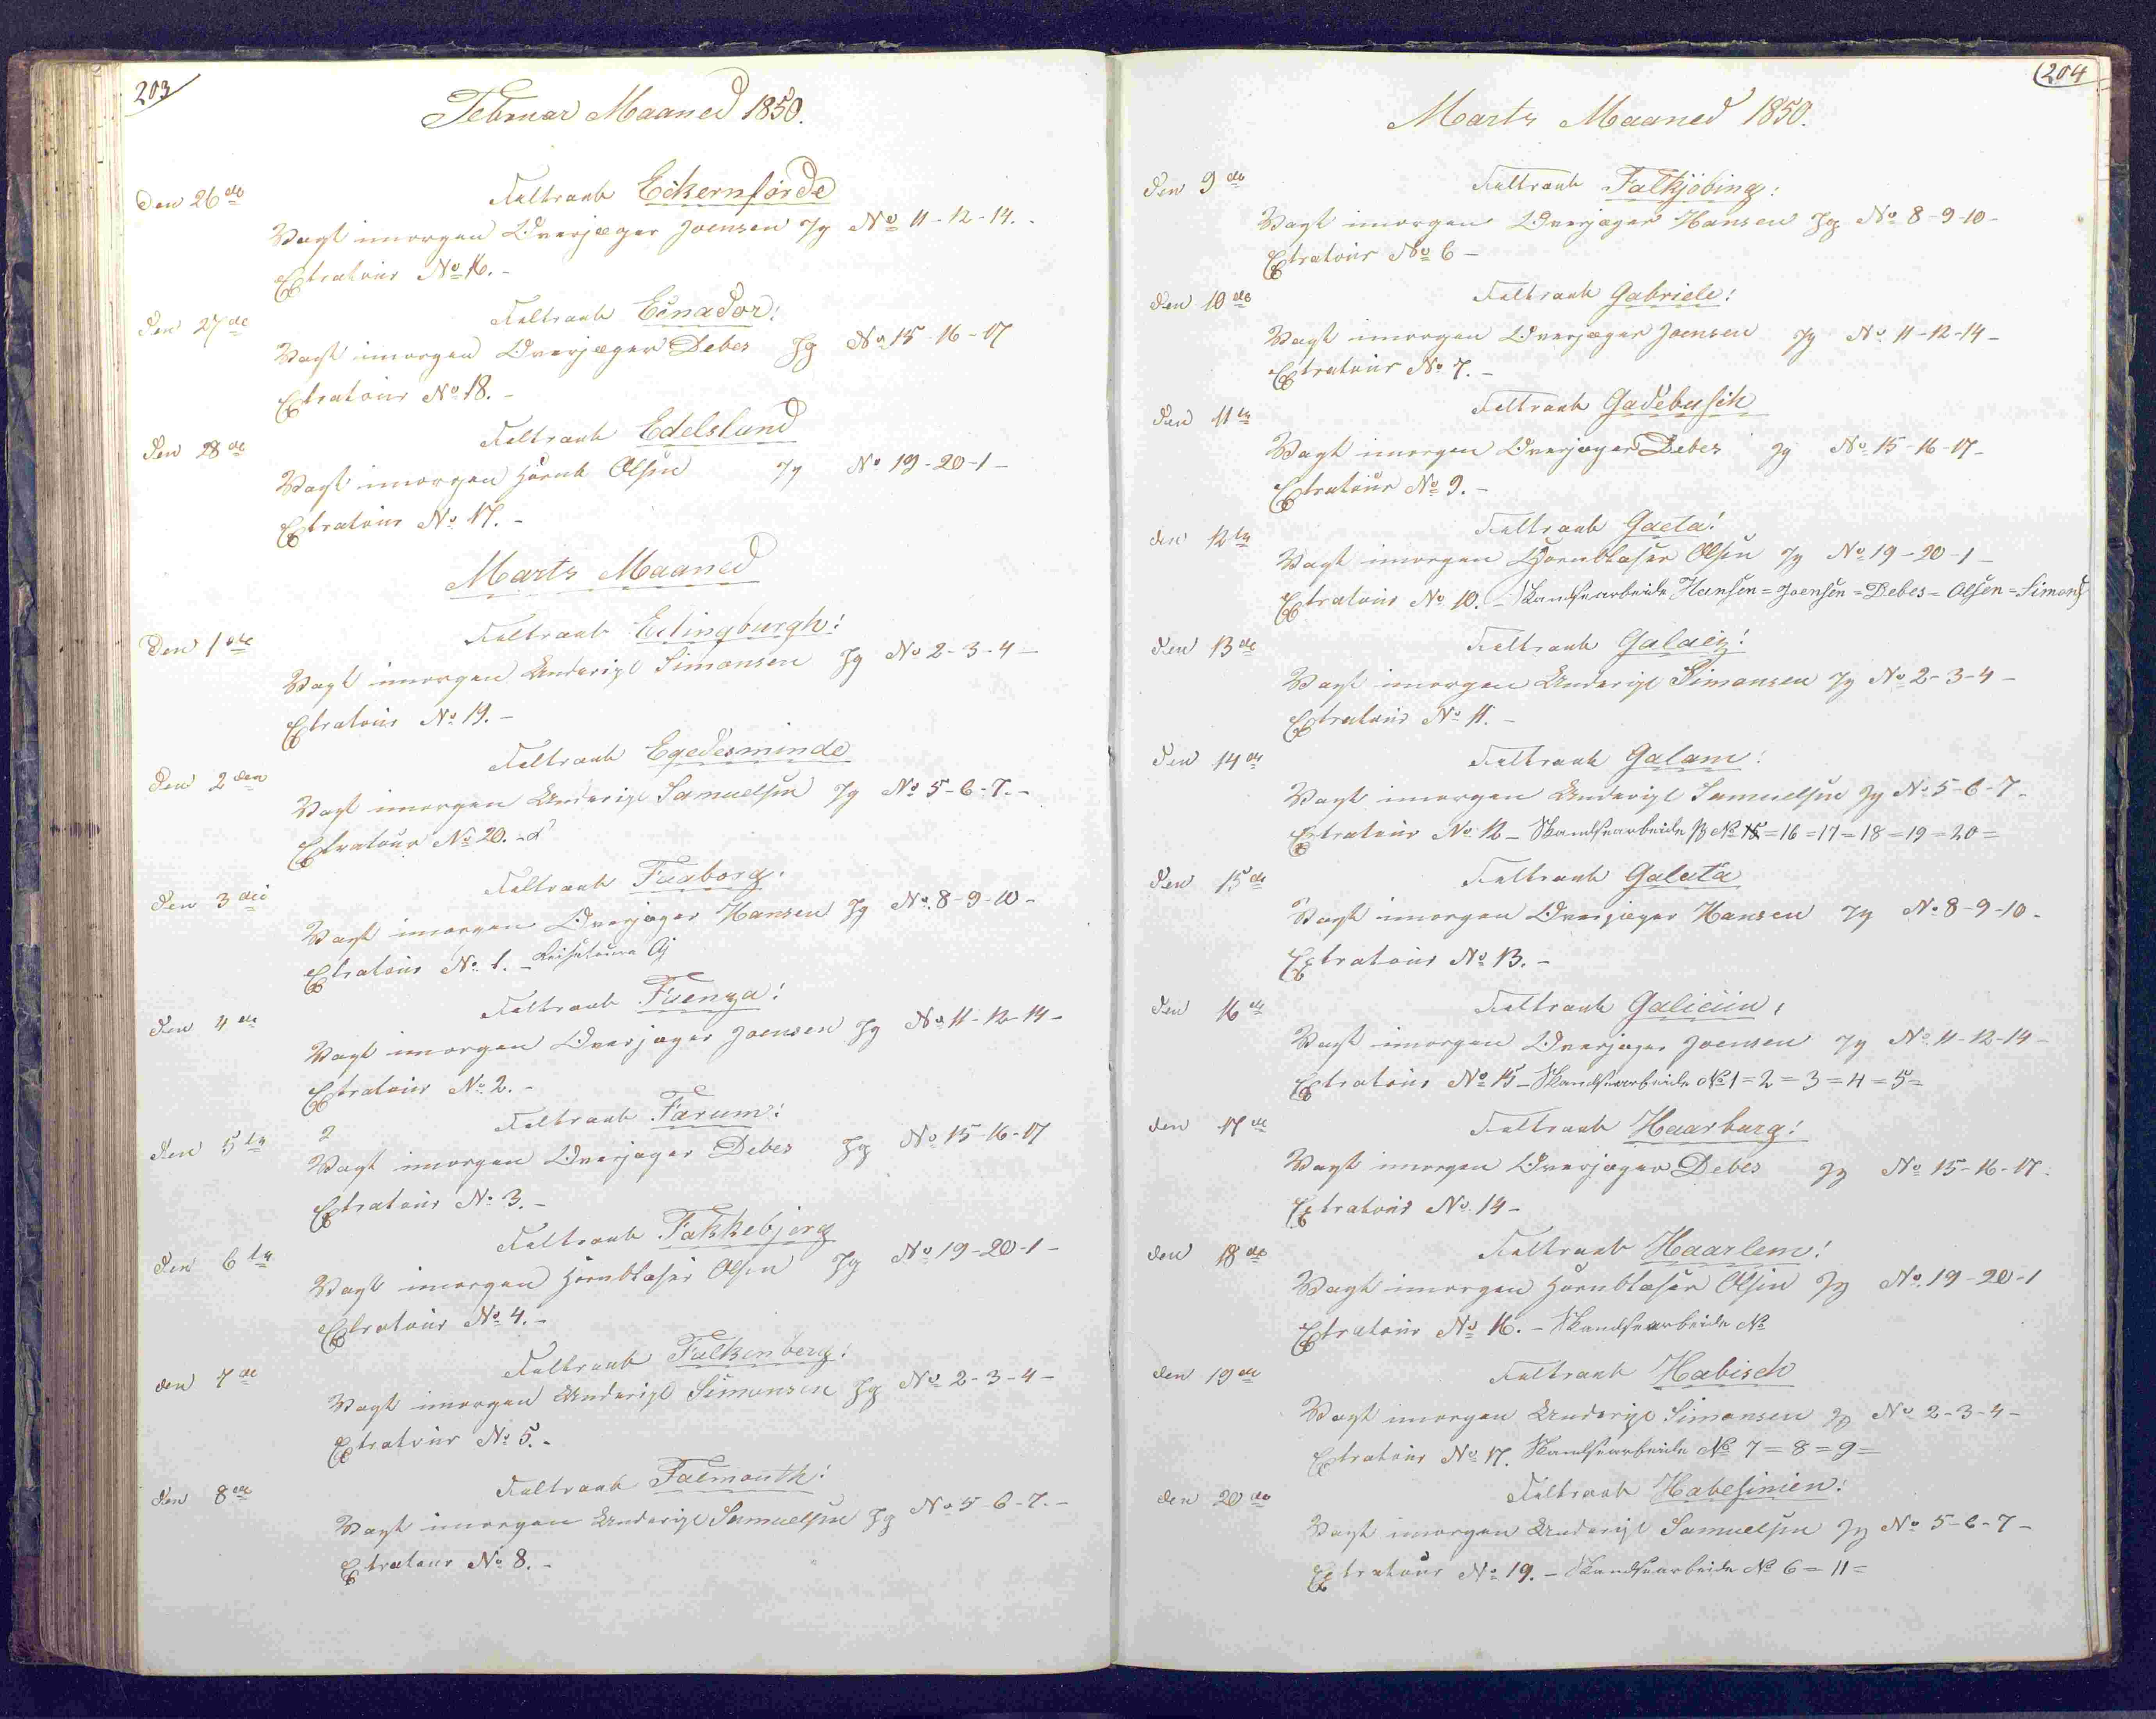 203
Februar Maaned 1850.
Den 26de
Feltraab Eckernførde
Vagt imorgen Overjæger Joensen Jg No 11-12-14.-
Extratour No 16.-
Den 27de
Feltraab Ecuador:
Vagt imorgen Overjæger Debes Jg No 15-16-17
Extratour No 18.-
Den 28de
Feltraab Edelslund
Vagt imorgen Hornb Olsen Jg No 19-20-1-
Extratour No 17.-
Marts Maaned
Den 1ste
Feltraab Edingburgh:
Vagt imorgen Underigl Simonsen Jg No 2-3-4-
Extratour No 19.-
Den 2den
Feltraab Egedesminde
Vagt imorgen Underigl Samuelsen Jg No 5-6-7.-
Extratour No 20.-
Den 3die
Feltraab Faaborg.
Vagt imorgen Overjæger Hansen Jg No 8-9-10-
Extratour No 1.-
Den 4de
Feltraab Faenza!
Vagt imorgen Overjæger Joensen Jg No 11-12-14-
Extratour No 2.-
Den 5te
2 Feltraab Farum!
Vagt imorgen Overjæger Debes Jg No 15-16-17
Extratour No 3.-
Den 6te
Feltraab Fakkebjerg
Vagt imorgen Hornblæser Olsen Jg No 19-20-1-
Extratour No 4.-
den 7de
Feltraab Falkenberg:
Vagt imorgen Underigl Simonsen Jg No 2-3-4-
Extratour No 5.-
den 8de
Feltraab Falmouth!
Vagt imorgen Underigl Samuelsen Jg No 5-6-7.-
Extratour No 8.-
204
Marts Maaned 1850.
Den 9de
Feltraab Falkjöbing:
Vagt imorgen Overjæger Hansen Jg No 8-9-10-
Extratour No 6-
Den 10de
Feltraab Gabriele!
Vagt imorgen Overjæger Joensen Jg No 11-12-14-
Extratour No 7.-
Den 11te
Feltraab Gadebusch
Vagt imorgen Overjæger Debes Jg No 15-16-17-
Extratour No 9.-
den 12te
Feltraab Gaeta!
Vagt imorgen Hornblæser Olsen Jg No 19-20-1-
Extratour No 10.- Skandsearbeide Hansen=Joensen=Debes=Olsen=Simons
Den 13de
Feltraab Galacz!
Vagt imorgen Underigl Simonsen Jg No 2-3-4-
Extratour No 11.-
Den 14de
Feltraab Galam!
Vagt imorgen Underigl Samuelsen Jg No 5-6-7-
Extratour No 12- Skandsearbeide No 15=16=17=18=19=20=
Den 15de
Feltraab Galata
Vagt imorgen Overjæger Hansen Jg No 8-9-10-
Extratour No 13.-
Den 16de
Feltraab Galicien,
Vagt imorgen Overjæger Joensen Jg No 11-12-14-
Extratour No 15- Skandsearbeide No 1=2=3=4=5=
den 17de
Feltraab Haarburg!
Vagt imorgen Overjæger Debes Jg No 15-16-17-
Extratour No 14-
den 18de
Feltraab Haarlem!
Vagt imorgen Hornblæser Olsen Jg No 19-20-1
Extratour No 16.- Skandsearbeide No
den 19de
Feltraab Habisch
Vagt imorgen Underigl Simonsen Jg No 2-3-4-
Extratour No 17. Skandsearbeide No 7=8=9=
den 20de
Feltraab Habesinien!
Vagt imorgen Underigl Samuelsen Jg No 5-6-7-
Extratour No 19.- Skandsearbeide No 6=11=